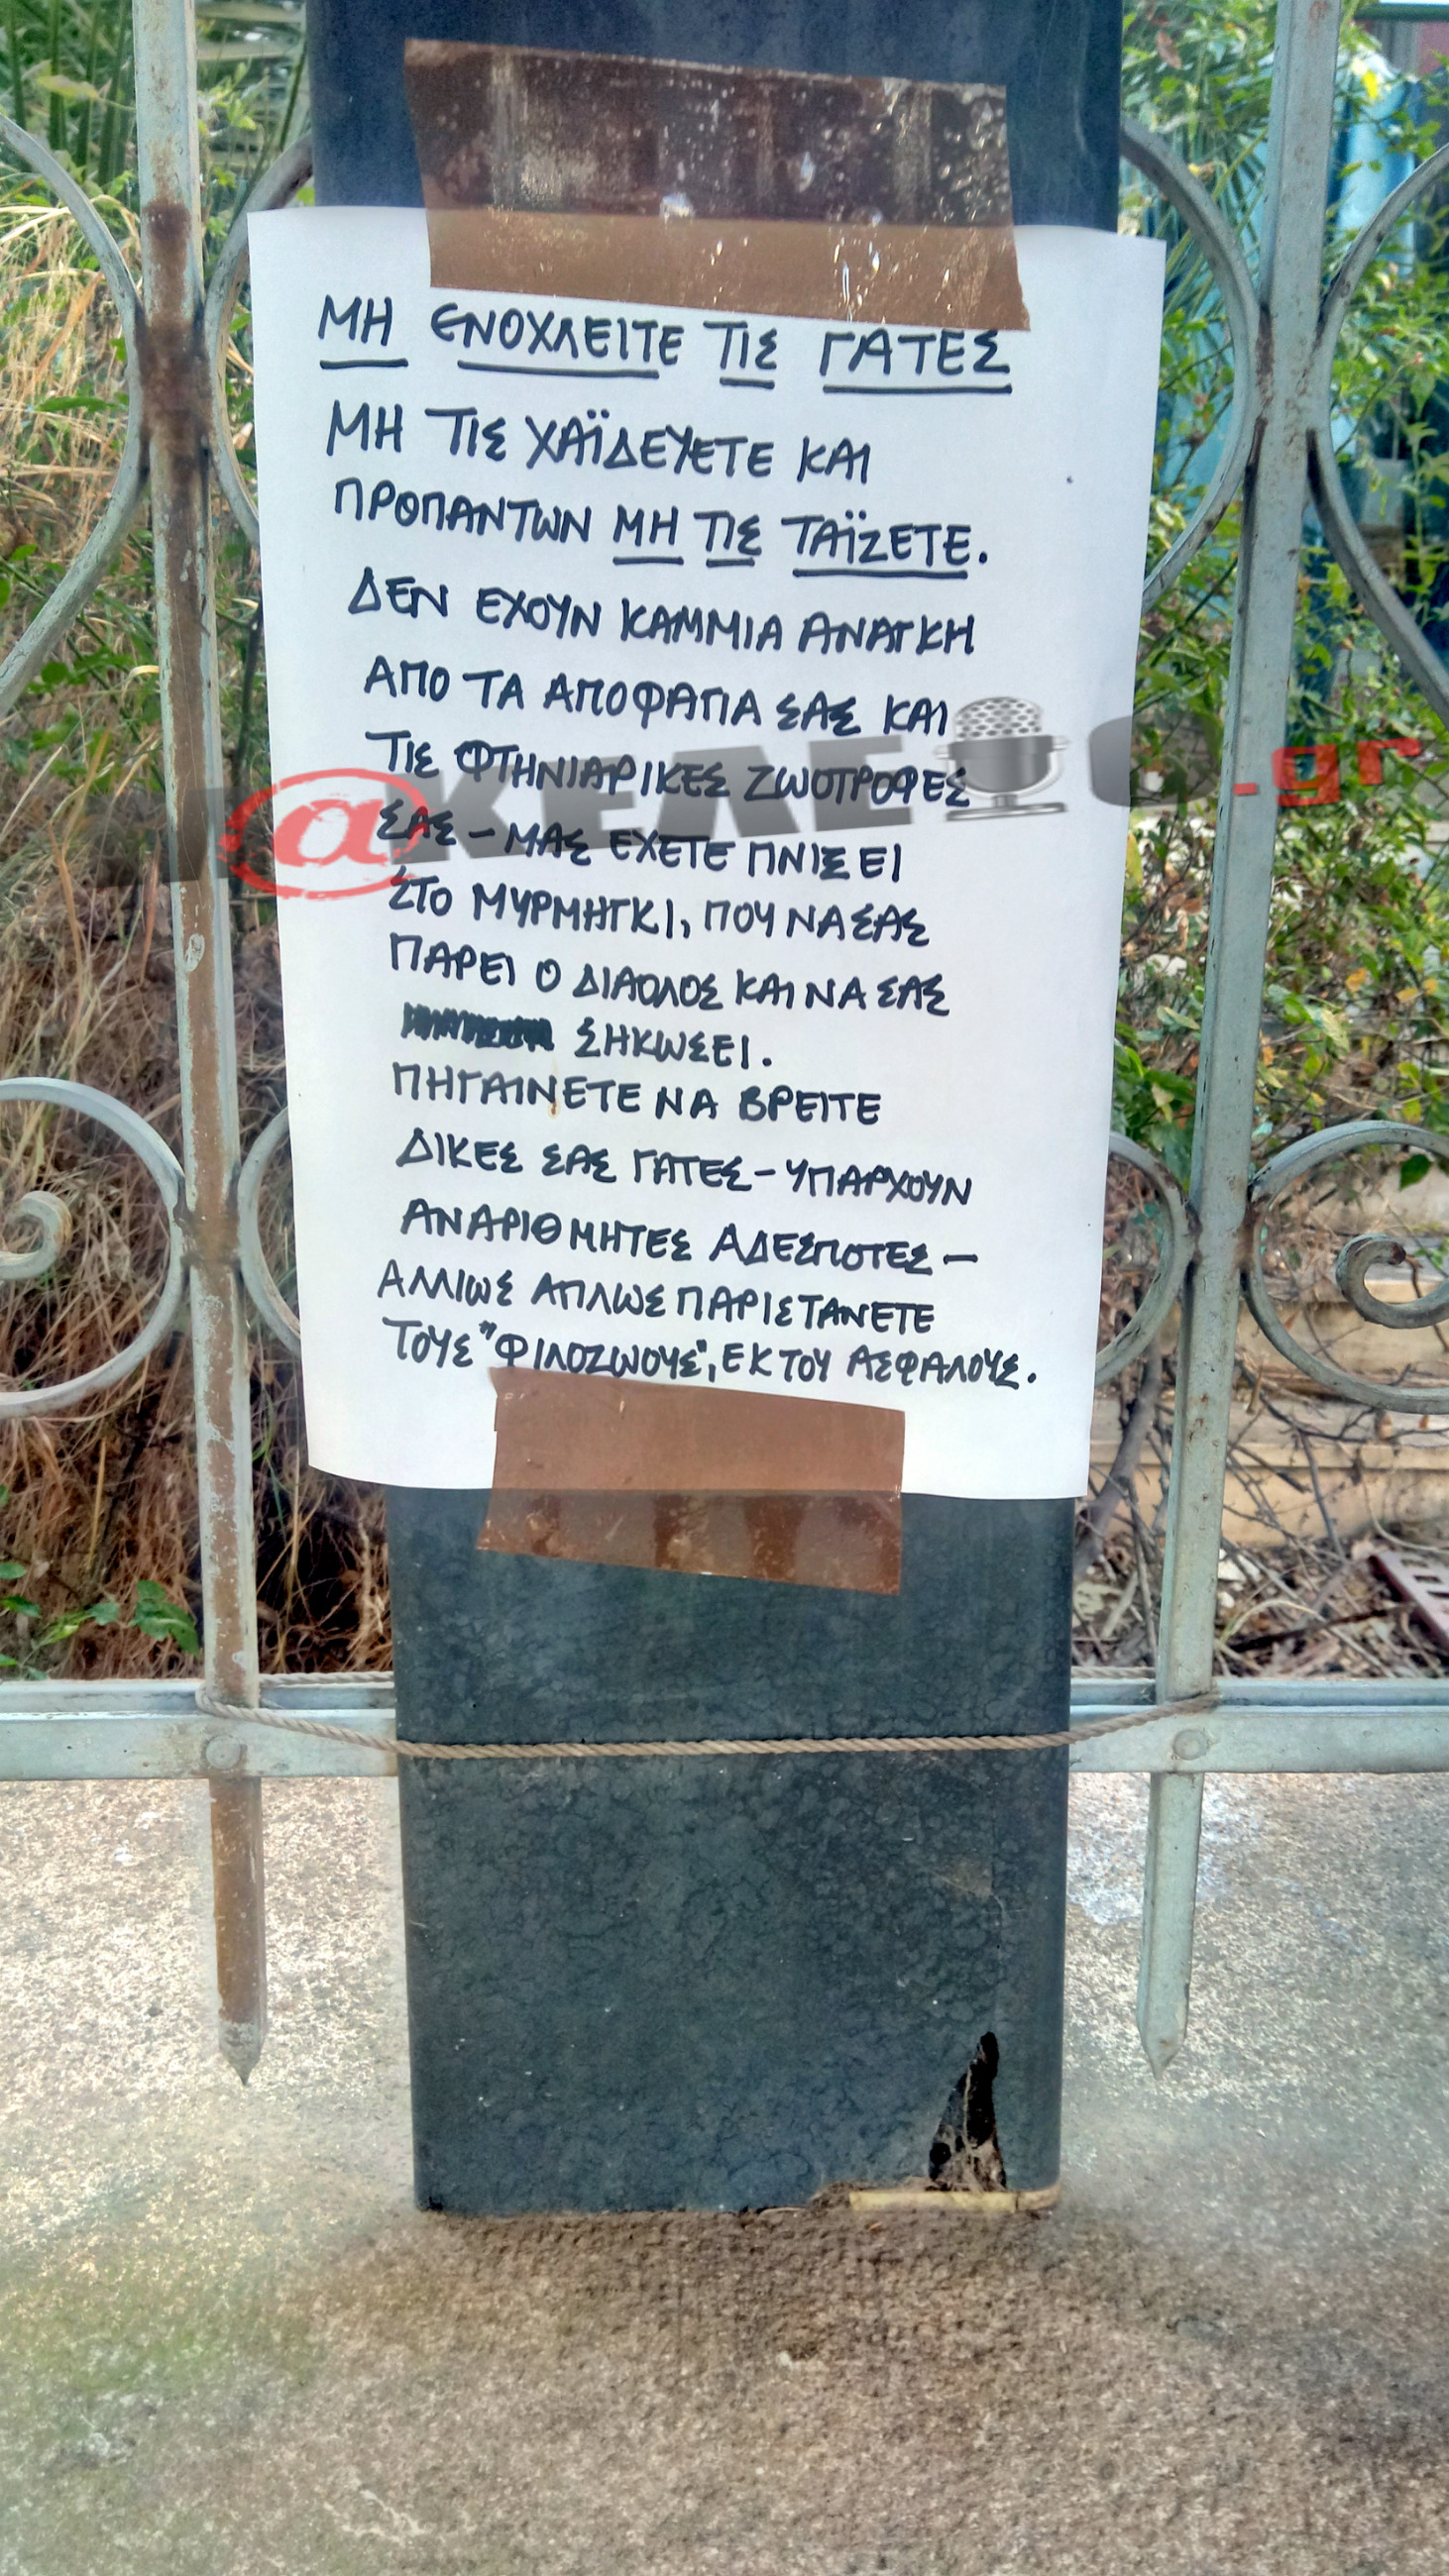 ΜΗ ΕΝΟΧΛΕΙΤΕ ΤΙΣ ΓΑΤΕΣ
ΜΗ ΤΙΣ ΧΑΪΔΕΥΕΤΕ ΚΑΙ
ΠΡΟΠΑΝΤΩΝ ΜΗ ΤΙΣ ΤΑΪΖΕΤΕ.
ΔΕΝ ΕΧΟΥΝ ΚΑΜΜΙΑ ΑΝΑΓΚΗ
ΑΠΟ ΤΑ ΑΠΟΦΑΓΙΑ ΣΑΣ ΚΑΙ
ΤΙΣ ΦΤΗΝΙΑΡΙΚΕΣ ΖΩΟΤΡΟΦΕΣ
ΣΑΣ - ΜΑΣ ΕΧΕΤΕ ΠΝΙΞΕΙ
ΣΤΟ ΜΥΡΜΗΓΚΙ, ΠΟΥ ΝΑ ΣΑΣ
ΠΑΡΕΙ Ο ΔΙΑΟΛΟΣ ΚΑΙ ΝΑ ΣΑΣ
ΣΗΚΩΣΕΙ.
ΠΗΓΑΙΝΕΤΕ ΝΑ ΒΡΕΙΤΕ
ΔΙΚΕΣ ΣΑΣ ΓΑΤΕΣ - ΥΠΑΡΧΟΥΝ
ΑΝΑΡΙΘΜΗΤΕΣ ΑΔΕΣΠΟΤΕΣ -
ΑΛΛΙΩΣ ΑΠΛΩΣ ΠΑΡΙΣΤΑΝΕΤΕ
ΤΟΥΣ "ΦΙΛΟΖΩΟΥΣ", ΕΚ ΤΟΥ ΑΣΦΑΛΟΥΣ.